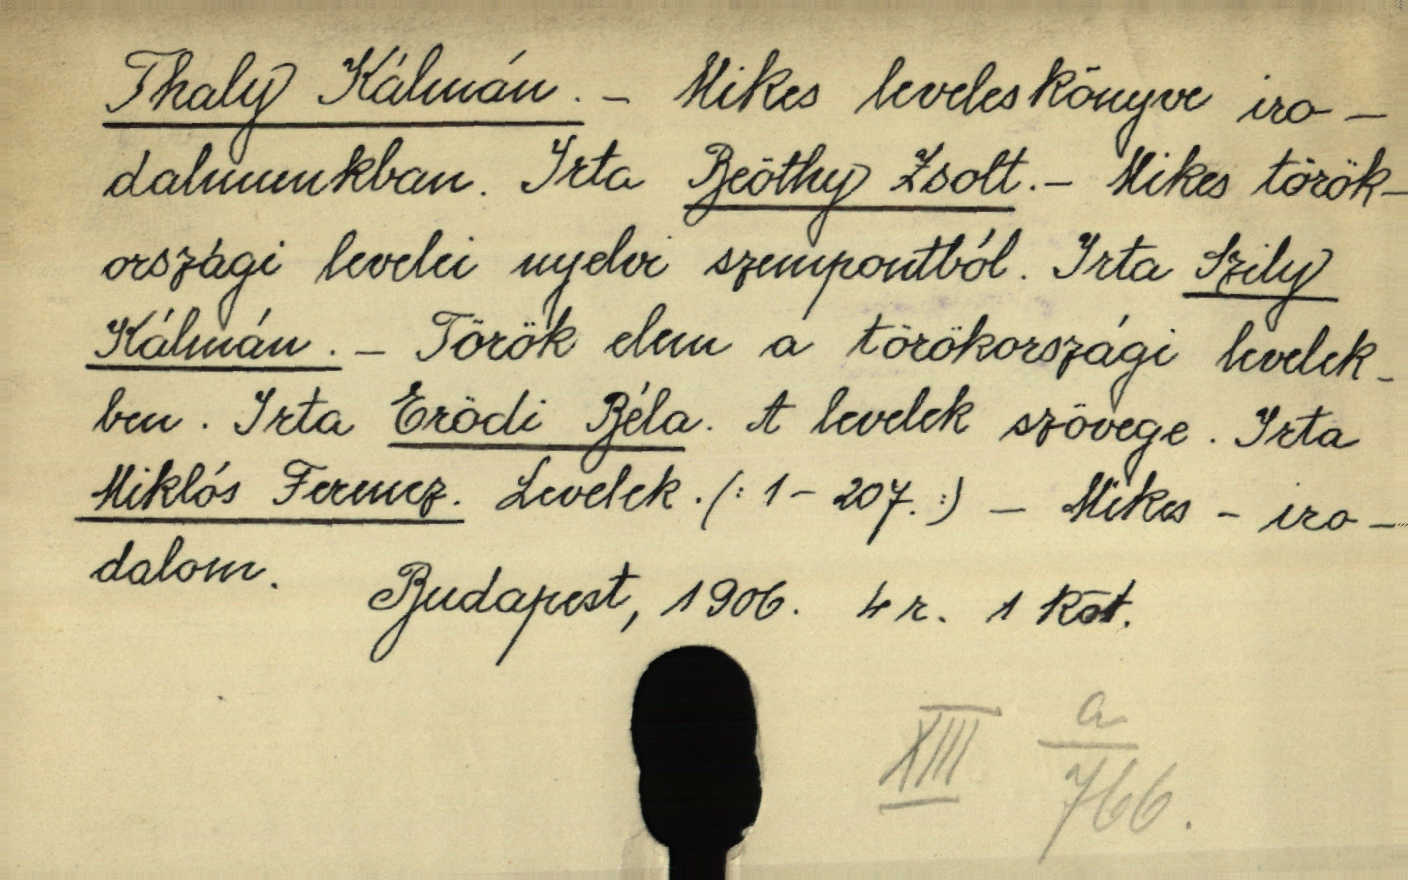 Thaly Kálmán. – Mikes leveleskönyve iro-
dalmunkban. Irta Beöthy Zsolt. – Mikes török-
országi levelei nyelvi szempontból. Irta Szily
Kálmán. – Török elem a törökországi levelek-
ben. Irta Erödi Béla. A levelek szövege. Irta
Miklós Ferencz. Levelek. (: 1 – 207. :) – Mikes - iro-
dalom.
Budapest, 1906. 4 r. 1 köt.
XIII a
766.